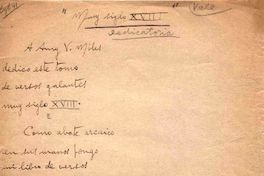 "Muy siglo XVIII" Vale
dedicatoria
A Amy V. Miles
dedico este tomo
de versos galantes
muy siglo XVIII.
2
Como abate arcaico
en sus manos pongo
mi libro de versos